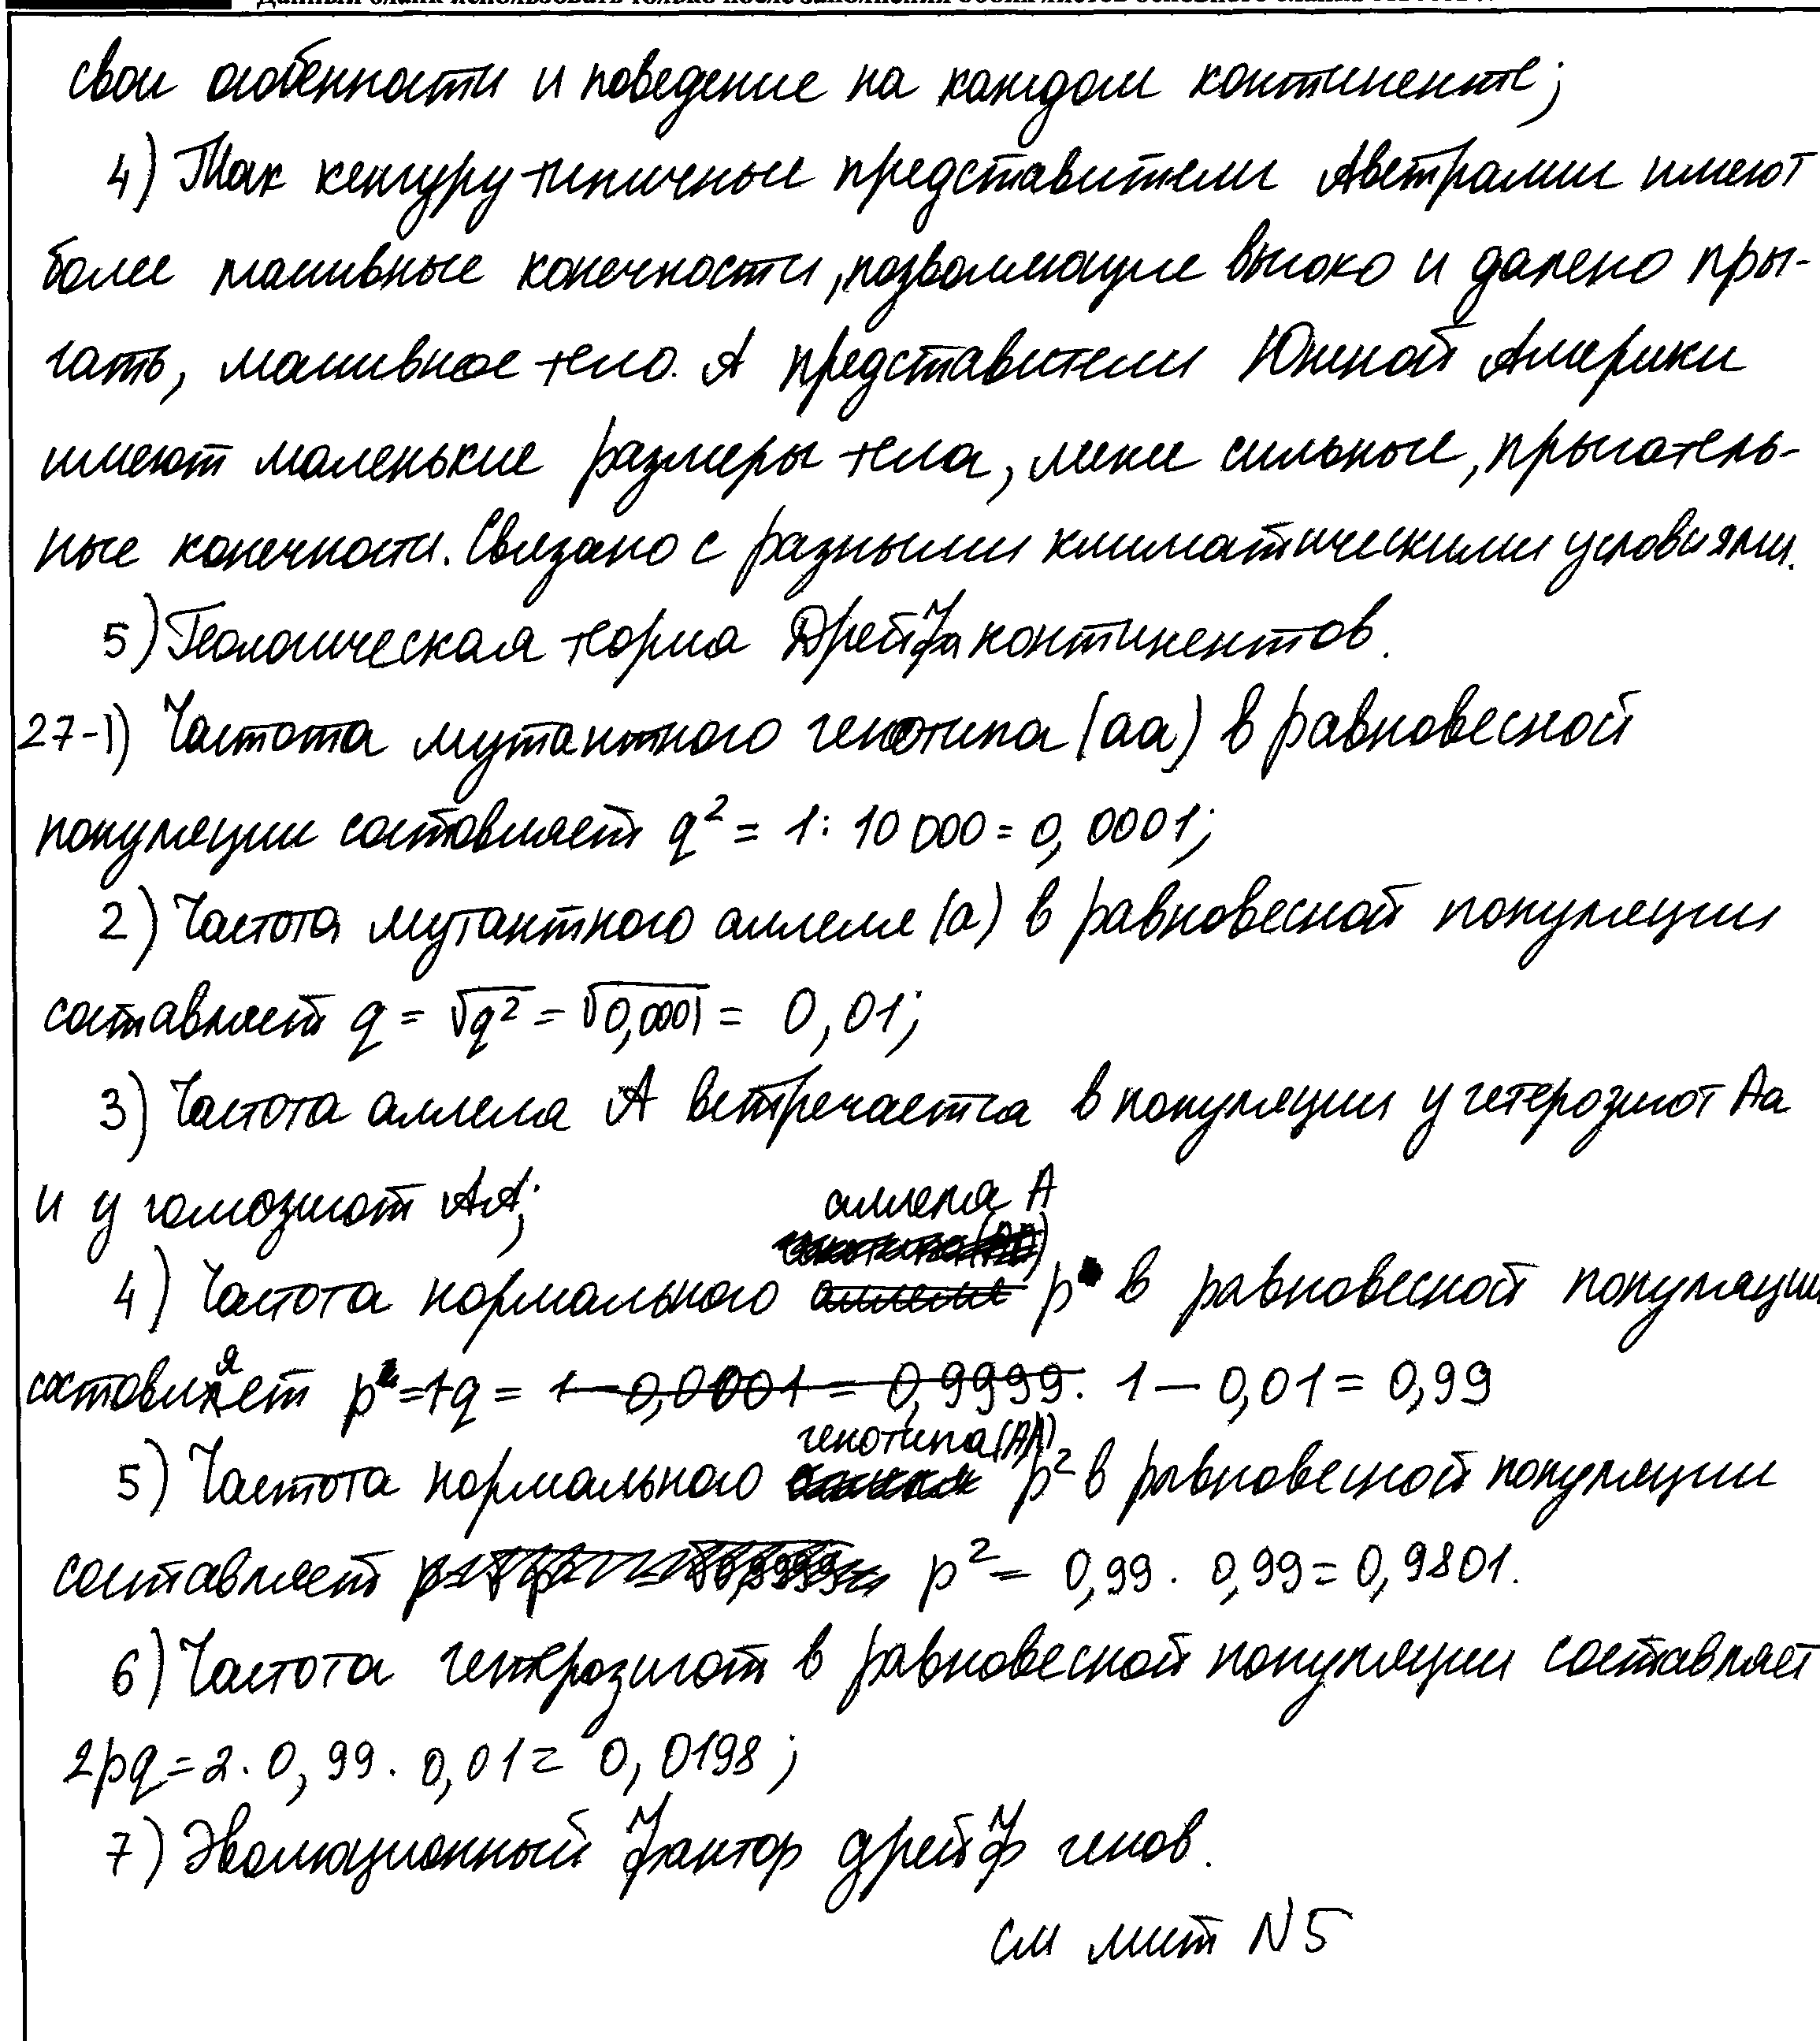 свои особенности и поведение на каждом континенте;
4) Так кенгуру типичные представители Австралии имеют
более массивные конечности, позволяющие высоко и далеко пры-
гать, массивное тело. А представители Южной Америки
имеют маленькие размеры тела, менее сильные, прыгатель-
ные конечности. Связано с разными климатическими условиями.
5) Геологическая теория Дрейфа континентов.
27-1) Частота мутантного генотипа (аа) в равновесной
популяции составляет q² = 1 : 10 000 = 0,0001;
2) Частота мутантного аллеля (а) в равновесной популяции
составляет q = √q² = √0,0001 = 0,01;
3) Частота аллеля А встречается в популяции у гетерозигот Аа
и у гомозигот АА;
аллеля А
4) Частота нормального p в равновесной популяции
составляет p = 1-q = 1 – 0,0001 = 0,9999. 1 – 0,01 = 0,99
генотипа (АА)
5) Частота нормального p² в равновесной популяции
составляет p² = 0,99 · 0,99 = 0,9801.
6) Частота гетерозигот в равновесной популяции составляет
2pq = 2 · 0,99 · 0,01 = 0,0198;
7) Эволюционный фактор дрейф генов.
см лист N 5